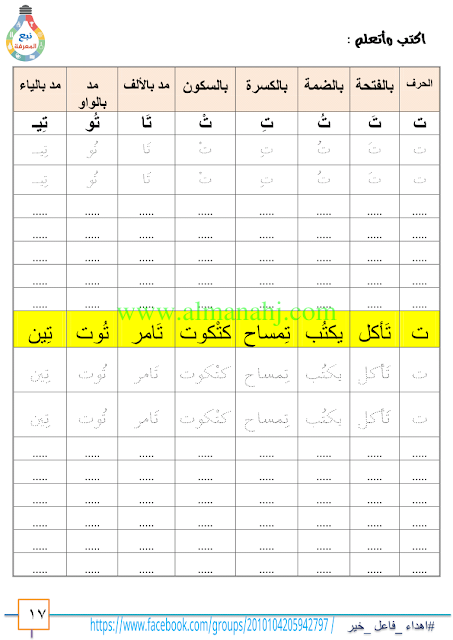 نبع
المعرفة
اكتب وأتعلم :
الحرف بالفتحة بالضمة بالكسرة بالسكون مد بالألف مد بالواو مد بالياء
ت تَ تُ تِ تْ تَا تُو تِيـ
ت تَ تُ تِ تْ تَا تُو تِيـ
ت تَ تُ تِ تْ تَا تُو تِيـ
..... ..... ..... ..... ..... ..... ..... .....
..... ..... ..... ..... ..... ..... ..... .....
..... ..... ..... ..... ..... ..... ..... .....
..... ..... ..... ..... ..... ..... ..... .....
..... ..... ..... ..... ..... ..... ..... .....
www.almanahj.com
ت تَأكل يكتُب تِمساح كتْكوت تَامر تُوت تِين
ت تَأكل يكتُب تِمساح كتْكوت تَامر تُوت تِين
ت تَأكل يكتُب تِمساح كتْكوت تَامر تُوت تِين
..... ..... ..... ..... ..... ..... ..... .....
..... ..... ..... ..... ..... ..... ..... .....
..... ..... ..... ..... ..... ..... ..... .....
..... ..... ..... ..... ..... ..... ..... .....
..... ..... ..... ..... ..... ..... ..... .....
..... ..... ..... ..... ..... ..... ..... .....
#اهداء_فاعل_خير https://www.facebook.com/groups/2010104205942797/ ١٧